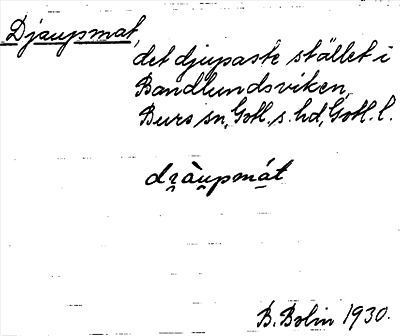 Djaupmat,
det djupaste stället i
Bandlundsviken,
Burs sn, Gotl. s. hd, Gotl. l.
dɀàu̯pmá̱t
B. Bolin 1930.